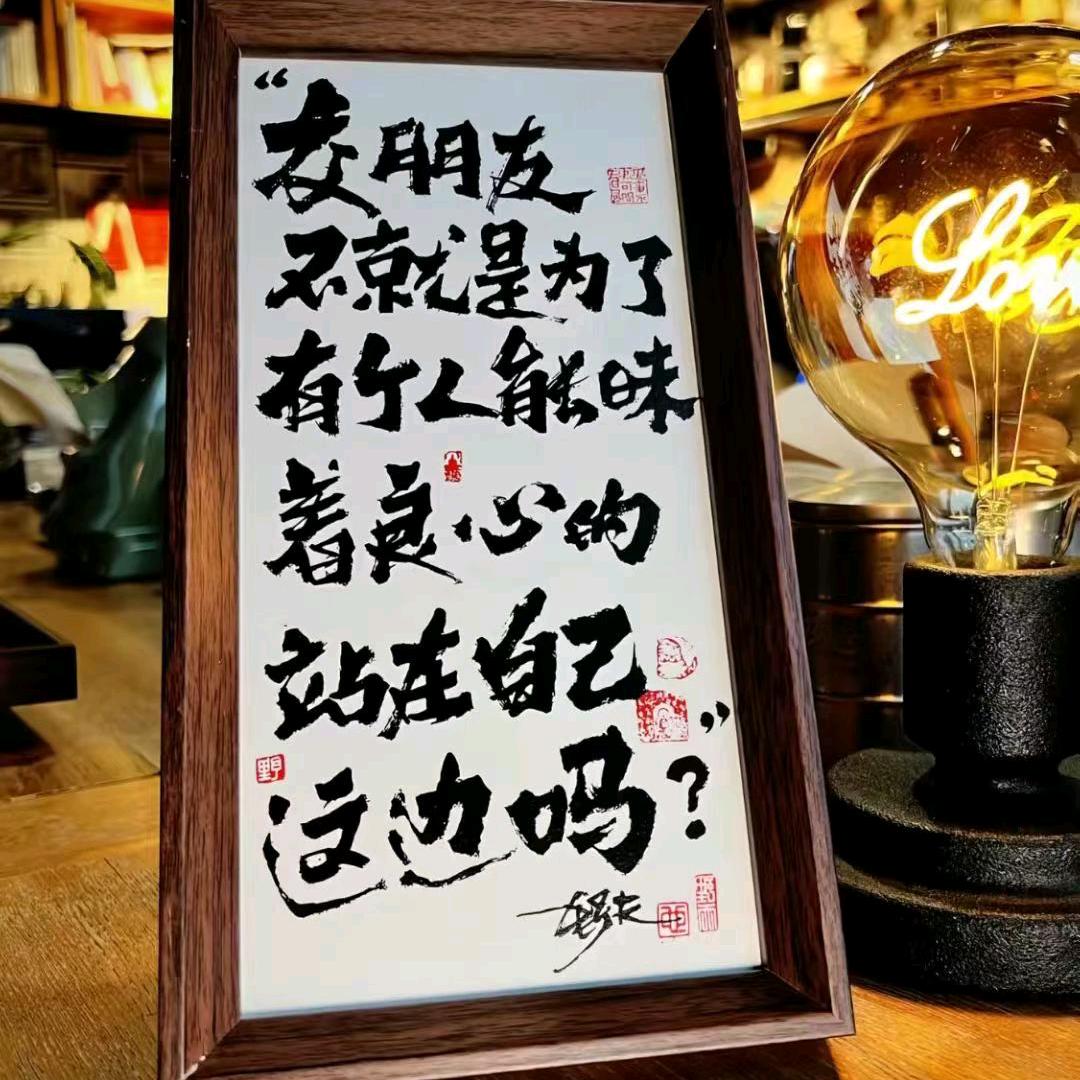 “交朋友
不就是为了
有个人能昧
着良心的
站在自己
野
这边吗”?